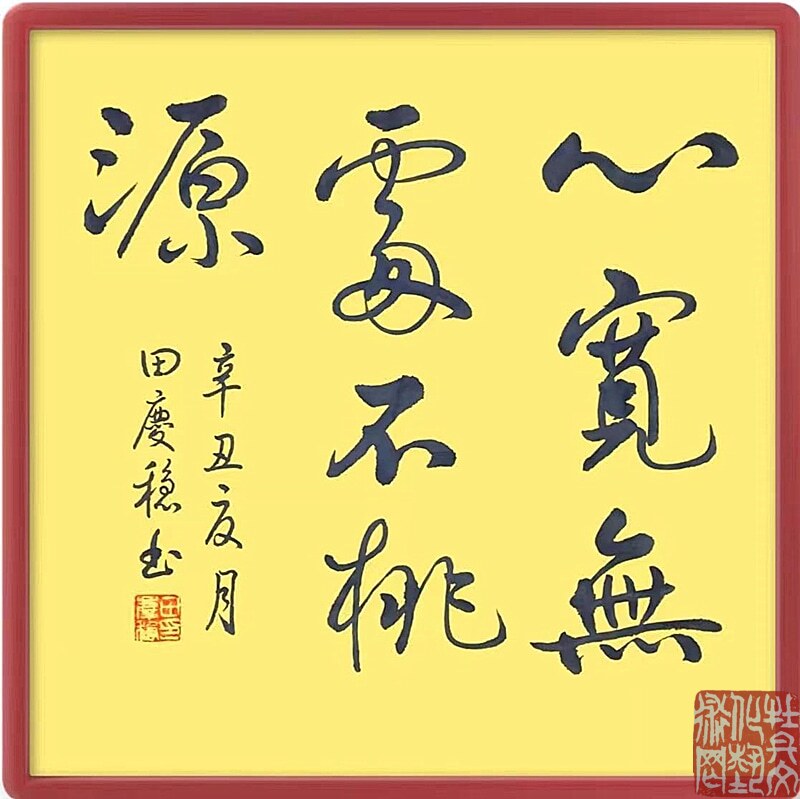 心寬無
處不桃
源
辛丑夏月
田慶稳书